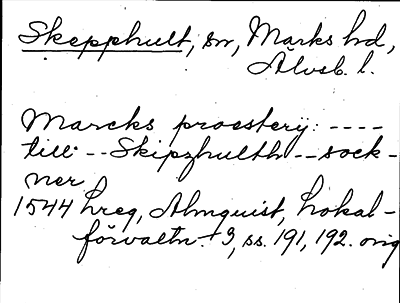 Skepphult, sn, Marks hd,
Älvsb. l.
Marcks proesterij: ----
till --Skipzhullth--sock-
ner
1544 hreg, Almquist, Lokal-
förvaltn. 3, ss. 191, 192. orig